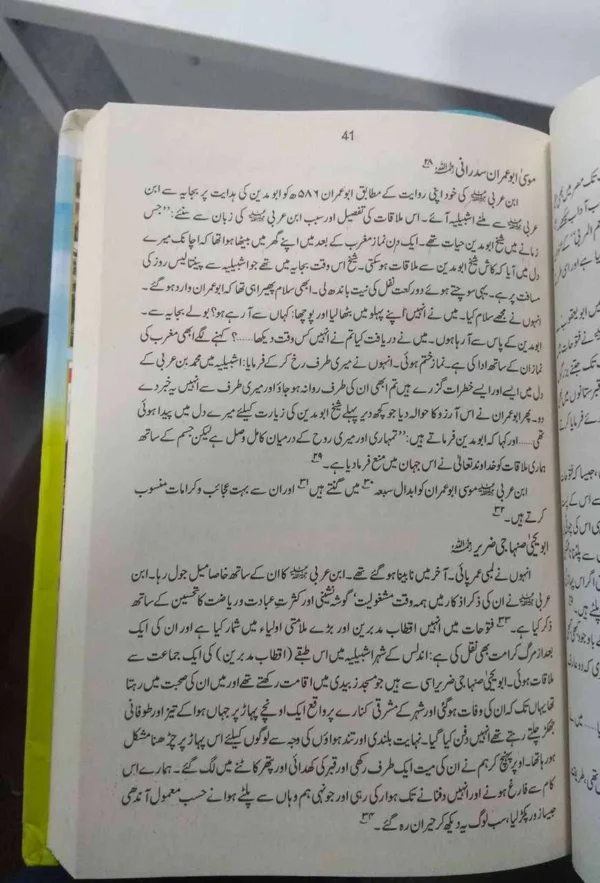 41
موسیٰ ابو عمران سدرانی رحمۃ اللہ ۲۸
ابن عربی کی خود اپنی روایت کے مطابق ابو عمران ۵۸۶ھ کو ابو مدین کی ہدایت پر بجایہ سے ابن
عربی سے ملنے اشبیلیہ آئے۔ اس ملاقات کی تفصیل اور سبب ابن عربی کی زبان سے سنئے: ’’جس
زمانے میں شیخ ابو مدین حیات تھے۔ ایک دن نماز مغرب کے بعد میں اپنے گھر میں بیٹھا ہوا تھا کہ اچانک میرے
دل میں آیا کہ کاش شیخ ابو مدین سے ملاقات ہو سکتی۔ شیخ اس وقت بجایہ میں تھے جو اشبیلیہ سے پینتالیس روز کی
مسافت پر ہے۔ یہی سوچتے ہوئے دو رکعت نفل کی نیت باندھ لی۔ ابھی سلام پھیرا ہی تھا کہ ابو عمران وارد ہو گئے۔
انہوں نے مجھے سلام کیا۔ میں نے انہیں اپنے پہلو میں بٹھا لیا اور پوچھا: کہاں سے آ رہے ہو؟ بولے بجایہ سے۔
ابو مدین کے پاس سے آ رہا ہوں۔ میں نے دریافت کیا تم نے انہیں کس وقت دیکھا.....؟ کہنے لگے ابھی مغرب کی
نماز ان کے ساتھ ادا کی ہے۔ نماز ختم ہوئی۔ انہوں نے میری طرف رخ کر کے فرمایا: اشبیلیہ میں محمد بن عربی کے
دل میں ایسے اور ایسے خطرات گزرے ہیں تم ابھی ان کی طرف روانہ ہو جاؤ اور میری طرف سے انہیں یہ خبر دے
دو۔ پھر ابو عمران نے اس آرزو کا حوالہ دیا جو کچھ دیر پہلے شیخ ابو مدین کی زیارت کیلئے میرے دل میں پیدا ہوئی
تھی..... اور کہا کہ ابو مدین فرماتے ہیں: ’’تمہاری اور میری روح کے درمیان کامل وصل ہے لیکن جسم کے ساتھ
ہماری ملاقات کو خداوند تعالیٰ نے اس جہان میں منع فرما دیا ہے۔ ۲۹
ابن عربی موسیٰ ابو عمران کو ابدال سبعہ ۳۰ میں گنتے ہیں ۳۱ اور ان سے بہت عجائب و کرامات منسوب
کرتے ہیں۔ ۳۲
ابو یحییٰ صنہاجی ضریر رحمۃ اللہ
انہوں نے لمبی عمر پائی۔ آخر میں نابینا ہو گئے تھے۔ ابن عربی کا ان کے ساتھ خاصا میل جول رہا۔ ابن
عربی نے ان کی ذکر اذکار میں ہمہ وقت مشغولیت، گوشہ نشینی اور کثرت عبادت و ریاضت کا تحسین کے ساتھ
ذکر کیا ہے۔ ۳۳ فتوحات میں انہیں اقطاب مدبرین اور بڑے ملامتی اولیاء میں شمار کیا ہے اور ان کی ایک
بعد از مرگ کرامت بھی نقل کی ہے: اندلس کے شہر اشبیلیہ میں اس طبقے (اقطاب مدبرین) کی ایک جماعت سے
ملاقات ہوئی۔ ابو یحییٰ صنہاجی ضریر اسی سے ہیں جو مسجد زبیدی میں اقامت رکھتے تھے اور میں ان کی صحبت میں رہتا
تھا یہاں تک کہ ان کی وفات ہو گئی اور شہر کے مشرقی کنارے پر واقع ایک اونچے پہاڑ پر جہاں ہوا کے تیز اور طوفانی
جھکڑ چلتے رہتے تھے انہیں دفن کیا گیا۔ نہایت بلندی اور تند ہواؤں کی وجہ سے لوگوں کیلئے اس پہاڑ پر چڑھنا مشکل
ہو رہا تھا۔ اوپر پہنچ کر ہم نے ان کی میت ایک طرف رکھی اور قبر کی کھدائی اور پتھر کاٹنے میں لگ گئے۔ ہمارے اس
کام سے فارغ ہونے اور انہیں دفنانے تک ہوا رکی رہی اور جونہی ہم وہاں سے پلٹے ہوا نے حسب معمول آندھی
جیسا زور پکڑ لیا، سب لوگ یہ دیکھ کر حیران رہ گئے۔ ۳۴